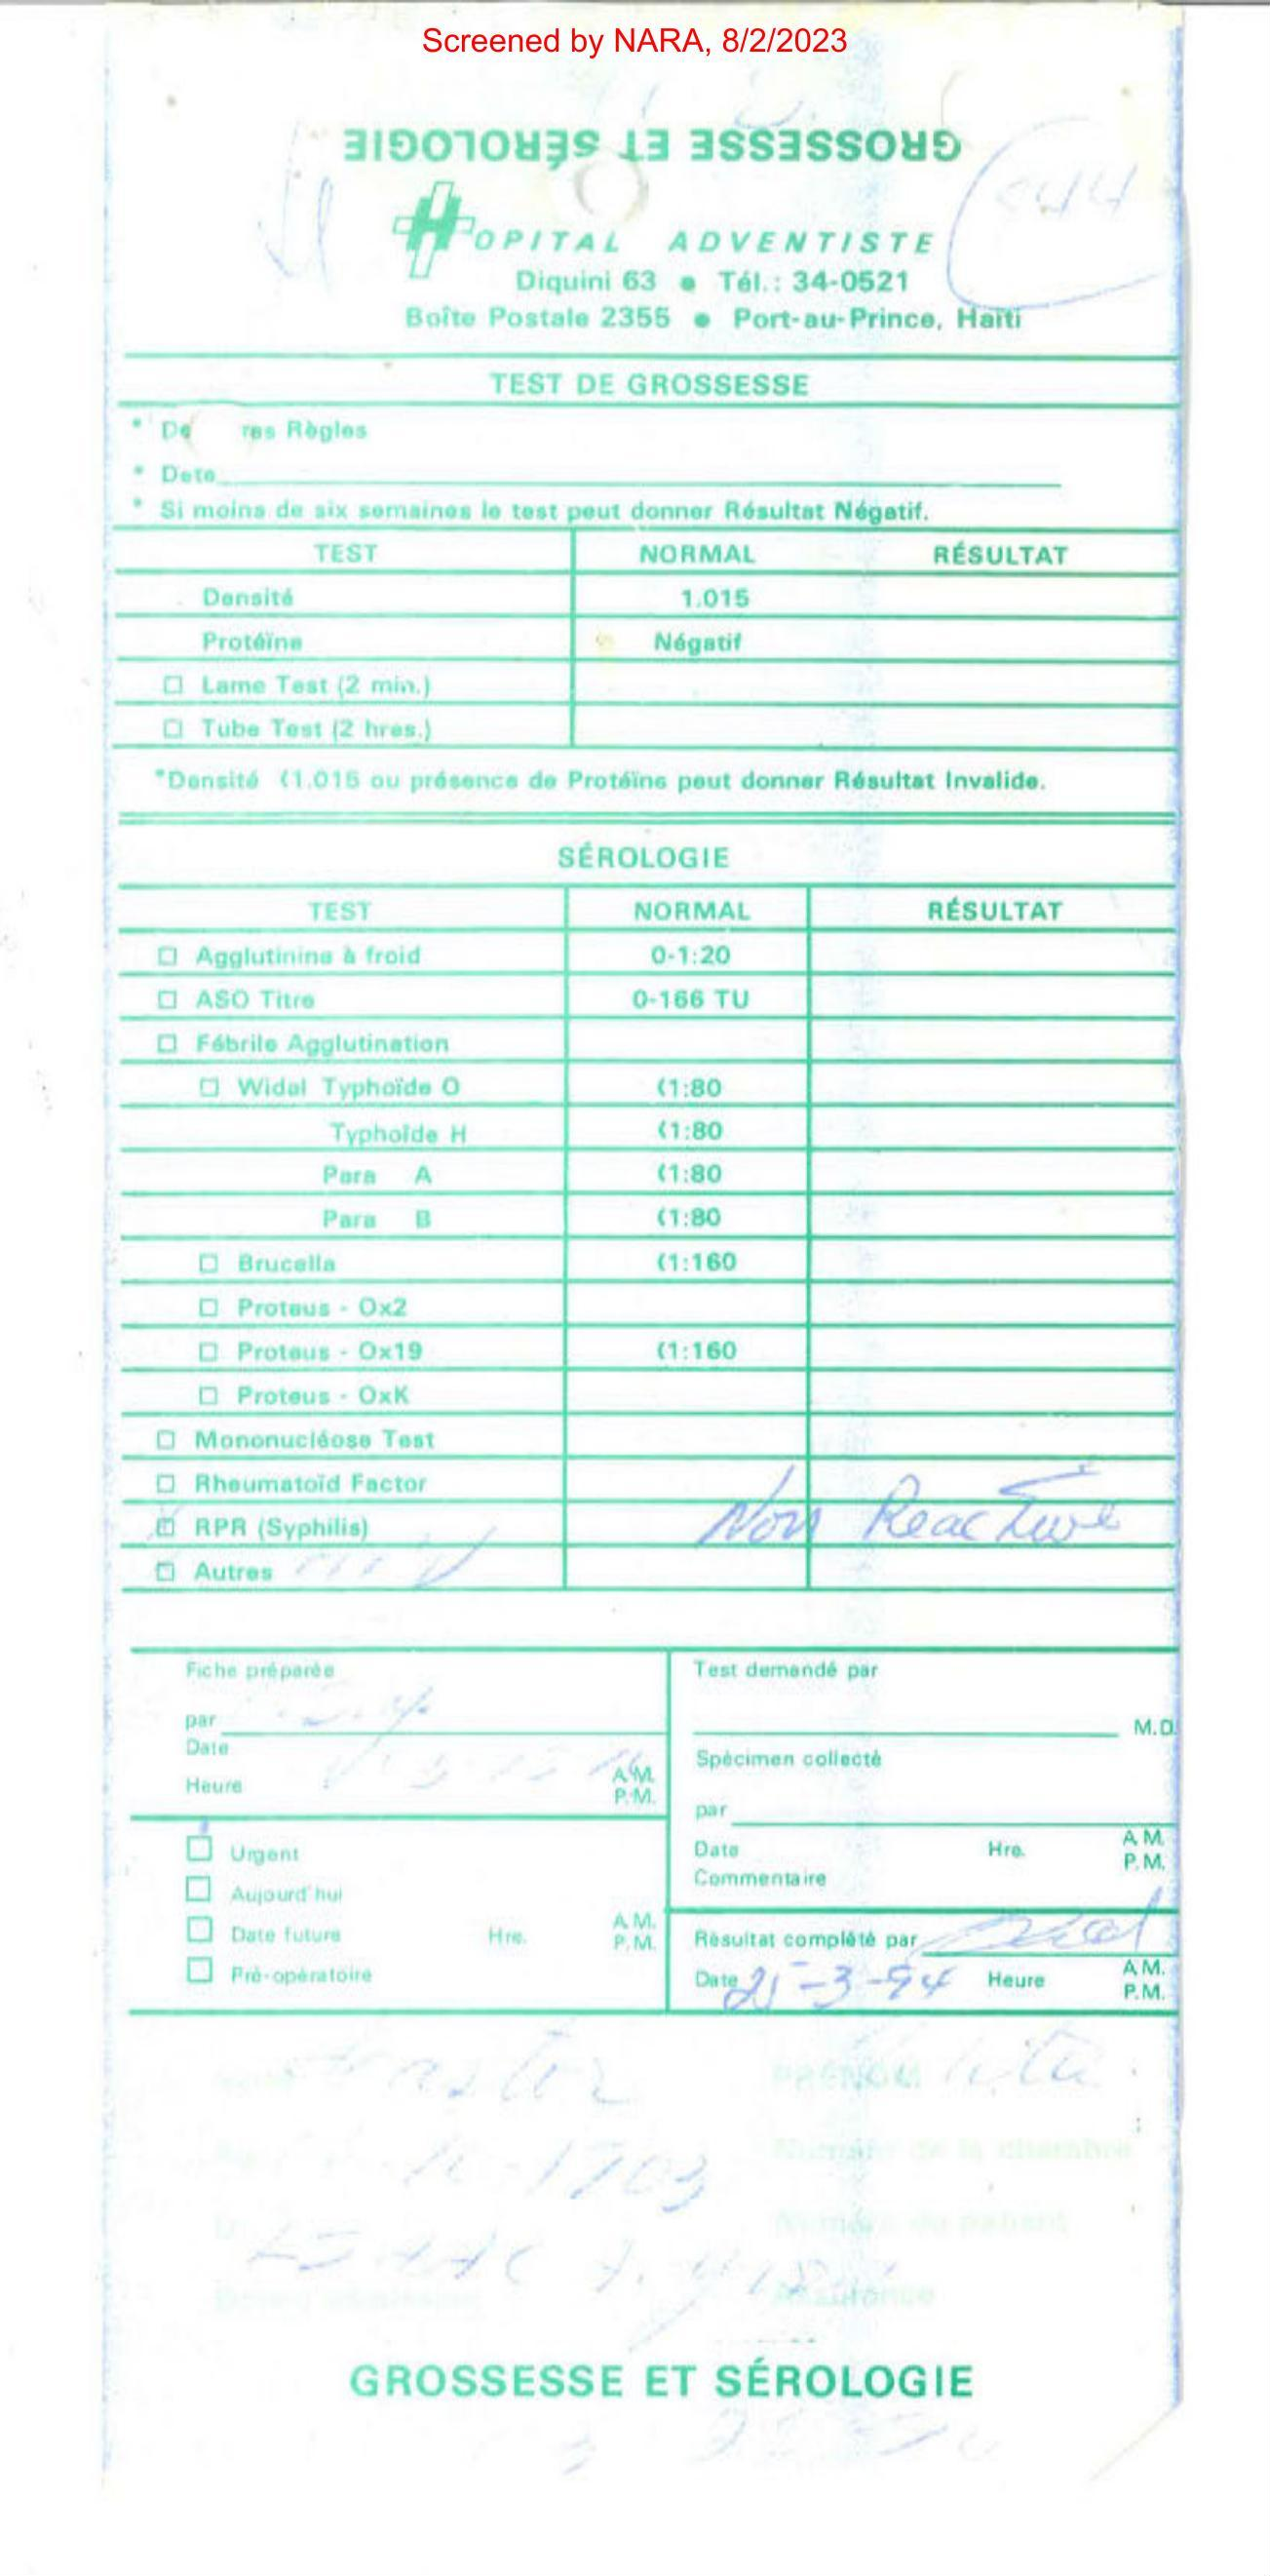 Screened by NARA, 8/2/2023
GROSSESSE ET SÉROLOGIE
HOPITAL ADVENTISTE
Diquini 63 ● Tél.: 34-0521
Boîte Postale 2355 ● Port-au-Prince, Haïti
TEST DE GROSSESSE
* De res Règles
* Date
* Si moins de six semaines le test peut donner Résultat Négatif.
TEST NORMAL RÉSULTAT
Densité 1.015
Protéïne Négatif
☐ Lame Test (2 min.)
☐ Tube Test (2 hres.)
*Densité (1.015 ou présence de Protéïne peut donner Résultat Invalide.
SÉROLOGIE
TEST NORMAL RÉSULTAT
☐ Agglutinine à froid 0-1:20
☐ ASO Titre 0-166 TU
☐ Fébrile Agglutination
☐ Widal Typhoïde O (1:80
Typhoïde H (1:80
Para A (1:80
Para B (1:80
☐ Brucella (1:160
☐ Proteus - Ox2
☐ Proteus - Ox19 (1:160
☐ Proteus - OxK
☐ Mononucléose Test
☐ Rheumatoïd Factor
☐ RPR (Syphilis) Non Reactive
☐ Autres
Fiche préparée
par
Date
Heure A.M. P.M.
☐ Urgent
☐ Aujourd'hui
☐ Date future Hre. A.M. P.M.
☐ Pré-opératoire
Test demandé par
M.D.
Spécimen collecté
par
Date Hre. A.M. P.M.
Commentaire
Résultat complété par
Date 25-3-94 Heure A.M. P.M.
PRÉNOM
Numéro de la chambre
Numéro du patient
Assurance
GROSSESSE ET SÉROLOGIE